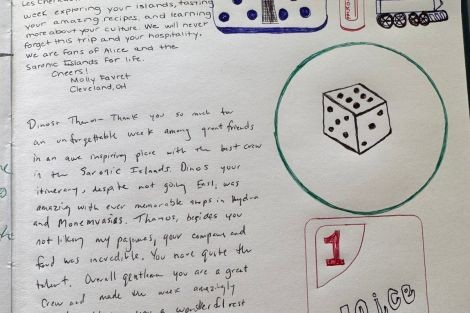 week exploring your islands, tasting
your amazing recipes, and learning
more about your culture. We will never
forget this trip and your hospitality.
We are fans of Alice and the
Saronic Islands for life.
Cheers!
Molly Favret
Cleveland, OH
Thank you so much for
an unforgettable week among great friends
in an awe inspiring place with the best crew
in the Saronic Islands. Dinos your
itinerary, despite not going East, was
amazing with ever memorable stops in Hydra
and Monemvasias. Thanos, besides you
not liking my pajamas, your company and
food was incredible. You have quite the
talent. Overall gentlemen you are a great
crew and made the week amazingly
wonderful rest
1